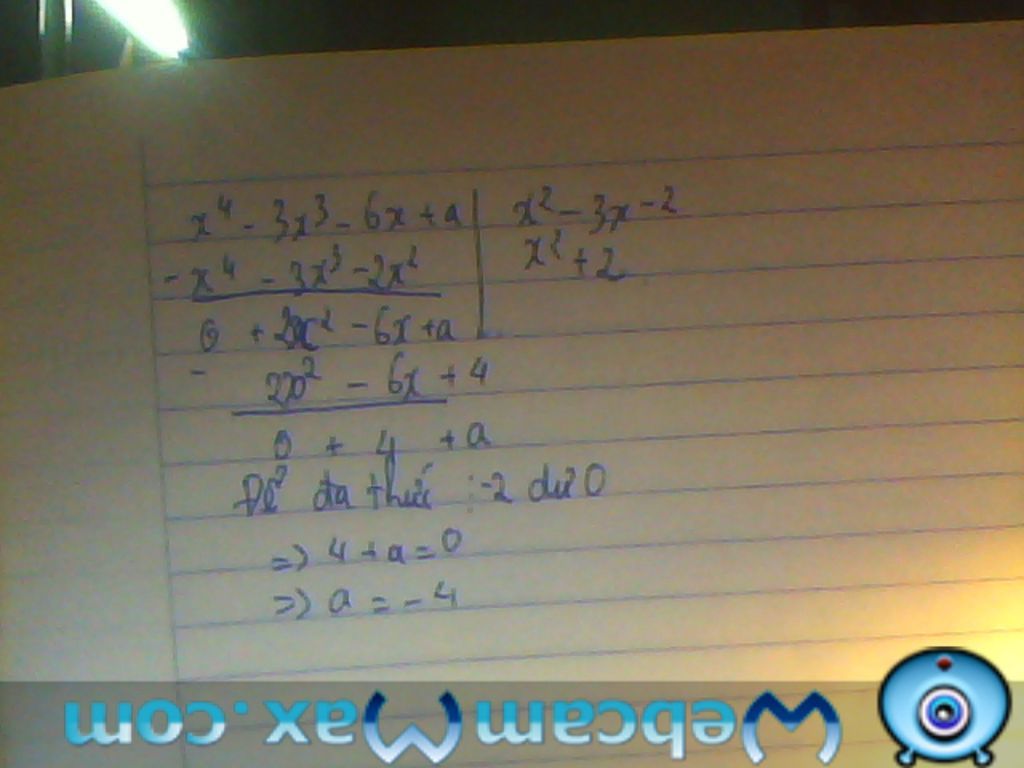 x⁴ - 3x³ - 6x + a | x² - 3x - 2
- x⁴ - 3x³ - 2x² | x² + 2
0 + 2x² - 6x + a
- 2x² - 6x + 4
0 + 4 + a
Để đa thức : -2 dư 0
=> 4 + a = 0
=> a = -4
WebcamMax.com